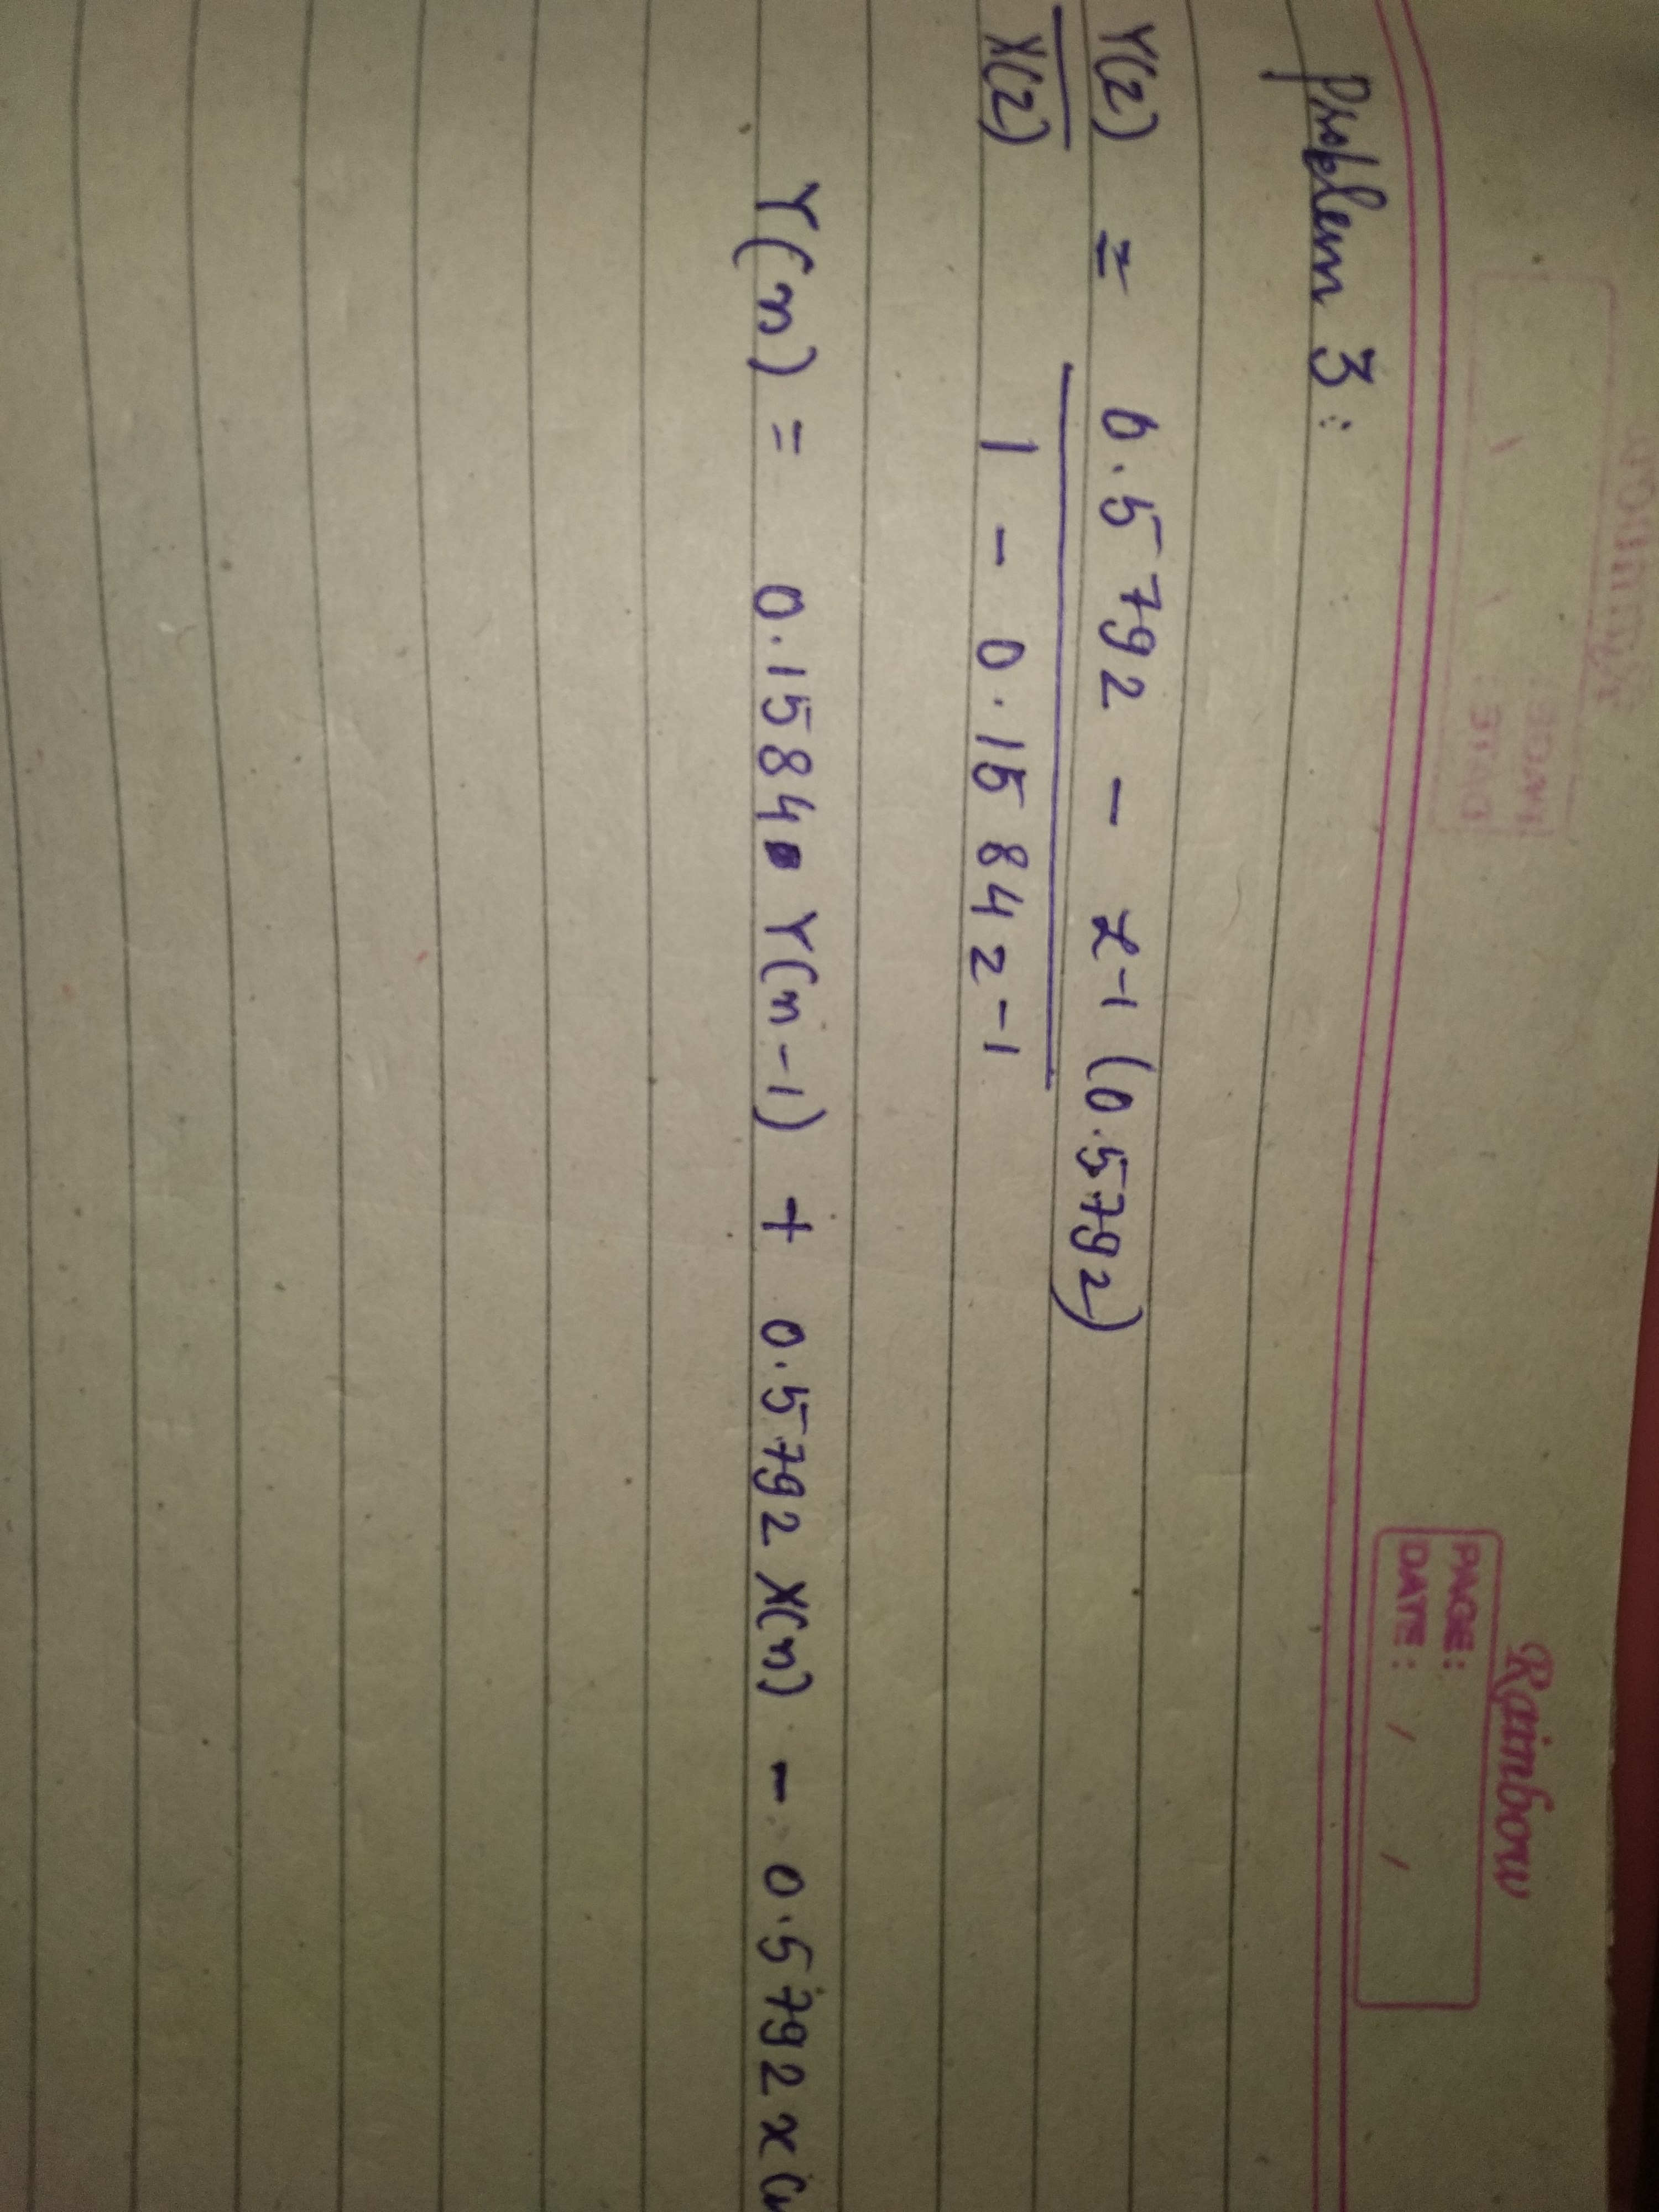 Rainbow
PAGE:
DATE: / /
Problem 3:
Y(z) = 0.5792 - z-1 (0.5792)
X(z) 1 - 0.1584z-1
Y(n) = 0.1584 Y(n-1) + 0.5792 X(n) - 0.5792 x(